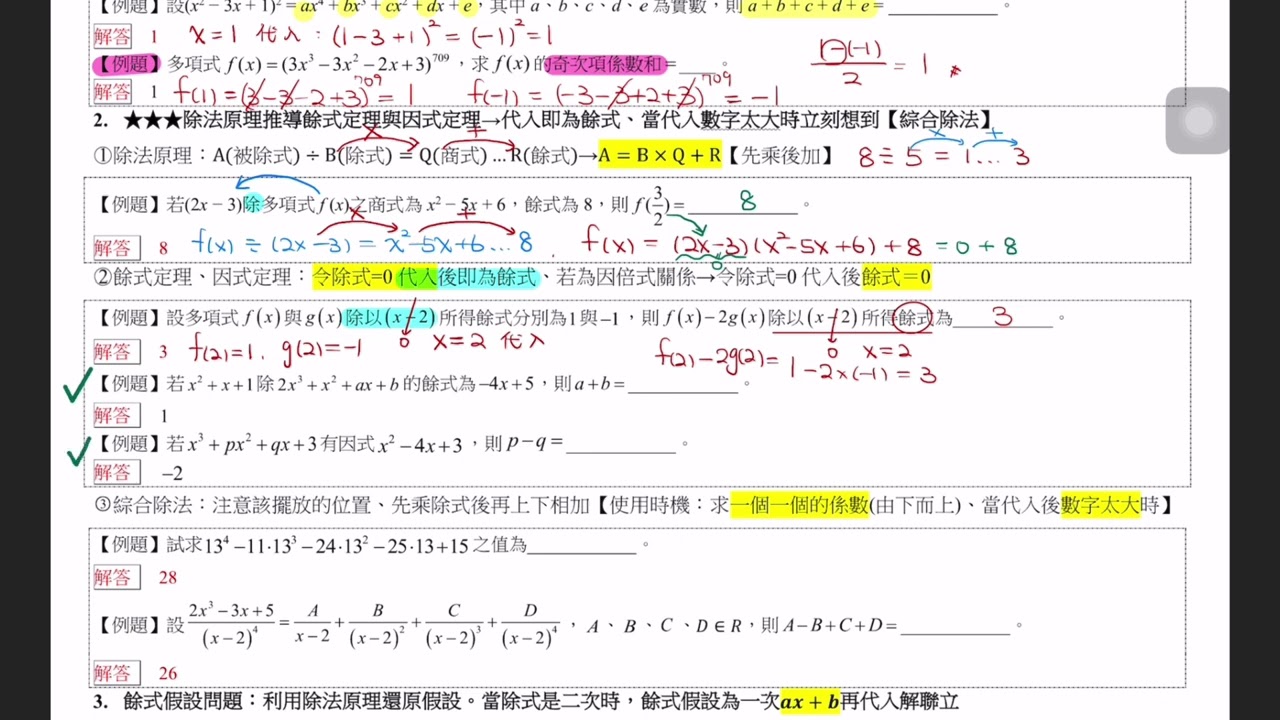 【例題】設(x² − 3x + 1)² = ax⁴ + bx³ + cx² + dx + e，其中 a、b、c、d、e 為實數，則 a + b + c + d + e = ＿＿＿。
解答 1 x=1 代入：(1-3+1)² = (-1)² = 1
【例題】多項式 f(x) = (3x³ − 3x² − 2x + 3)⁷⁰⁹，求 f(x) 的奇次項係數和 = ＿＿。 1-(-1)/2 = 1
解答 1 f(1) = (3-3-2+3)⁷⁰⁹ = 1 f(-1) = (-3-3+2+3)⁷⁰⁹ = -1
2. ★★★除法原理推導餘式定理與因式定理→代入即為餘式、當代入數字太大時立刻想到【綜合除法】
①除法原理：A(被除式) ÷ B(除式) = Q(商式) … R(餘式)→A = B × Q + R【先乘後加】 8÷5=1…3
【例題】若(2x − 3)除多項式 f(x)之商式為 x² − 5x + 6，餘式為 8，則 f(3/2) = 8。
解答 8 f(x) ÷ (2x-3) = x²-5x+6…8 f(x) = (2x-3)(x²-5x+6)+8 = 0+8
0
②餘式定理、因式定理：令除式=0 代入後即為餘式、若為因倍式關係→令除式=0 代入後餘式＝0
【例題】設多項式 f(x) 與 g(x) 除以 (x−2) 所得餘式分別為1與−1，則 f(x)−2g(x) 除以 (x−2) 所得餘式為 3。
解答 3 f(2)=1, g(2)=-1 0 x=2 代入 f(2)-2g(2)= 1-2×(-1)=3 0 x=2
【例題】若 x² + x + 1 除 2x³ + x² + ax + b 的餘式為 −4x + 5，則 a + b = ＿＿＿。
解答 1
【例題】若 x³ + px² + qx + 3 有因式 x² − 4x + 3，則 p − q = ＿＿＿。
解答 −2
③綜合除法：注意該擺放的位置、先乘除式後再上下相加【使用時機：求一個一個的係數(由下而上)、當代入後數字太大時】
【例題】試求13⁴ −11·13³ −24·13² −25·13+15 之值為＿＿＿。
解答 28
【例題】設 (2x³ − 3x + 5)/(x−2)⁴ = A/(x−2) + B/(x−2)² + C/(x−2)³ + D/(x−2)⁴，A、B、C、D ∈ R，則 A − B + C + D = ＿＿＿。
解答 26
3. 餘式假設問題：利用除法原理還原假設。當除式是二次時，餘式假設為一次ax + b再代入解聯立